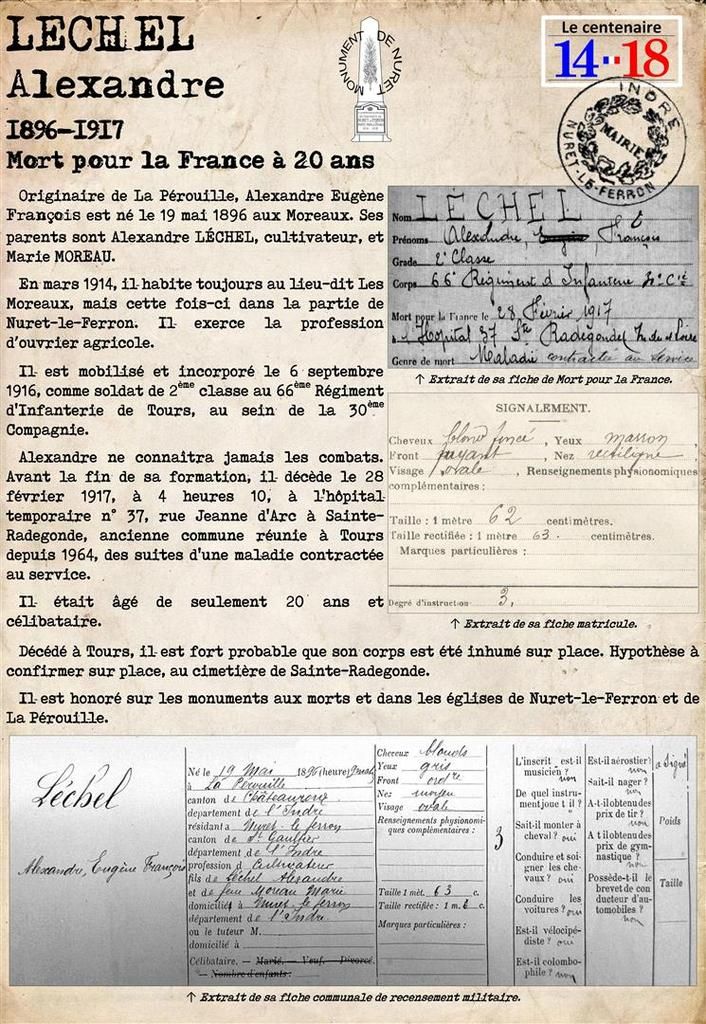 LECHEL
Alexandre
1896-1917
Mort pour la France à 20 ans
MONUMENT DE NURET
Le centenaire
14..18
INDRE
MAIRIE
NURET-LE-FERRON
Originaire de La Pérouille, Alexandre Eugène
François est né le 19 mai 1896 aux Moreaux. Ses
parents sont Alexandre LÉCHEL, cultivateur, et
Marie MOREAU.
En mars 1914, il habite toujours au lieu-dit Les
Moreaux, mais cette fois-ci dans la partie de
Nuret-le-Ferron. Il exerce la profession
d'ouvrier agricole.
Il est mobilisé et incorporé le 6 septembre
1916, comme soldat de 2ème classe au 66ème Régiment
d'Infanterie de Tours, au sein de la 30ème
Compagnie.
Alexandre ne connaitra jamais les combats.
Avant la fin de sa formation, il décède le 28
février 1917, à 4 heures 10, à l'hôpital
temporaire n° 37, rue Jeanne d'Arc à Sainte-
Radegonde, ancienne commune réunie à Tours
depuis 1964, des suites d'une maladie contractée
au service.
Il était âgé de seulement 20 ans et
célibataire.
Nom LÉCHEL
Prénoms Alexandre, François
Grade 2e Classe
Corps 66e Régiment d'Infanterie
Mort pour la France le 28 Février 1917
Hopital 37 Ste Radegonde, Indre et Loire
Genre de mort Maladie contractée au service
↑ Extrait de sa fiche de Mort pour la France.
SIGNALEMENT.
Cheveux blond foncé, Yeux marron,
Front fuyant, Nez rectiligne
Visage ovale, Renseignements physionomiques
complémentaires :
Taille : 1 mètre 62 centimètres.
Taille rectifiée : 1 mètre 63. centimètres.
Marques particulières :
Degré d'instruction 3.
↑ Extrait de sa fiche matricule.
Décédé à Tours, il est fort probable que son corps est été inhumé sur place. Hypothèse à
confirmer sur place, au cimetière de Sainte-Radegonde.
Il est honoré sur les monuments aux morts et dans les églises de Nuret-le-Ferron et de
La Pérouille.
Léchel
Alexandre, Eugène François
Né le 19 Mai 1896 (heure)
à La Pérouille
canton de Châteauroux
département de l'Indre
résidant à Nuret le ferron
canton de St Gaultier
département de l'Indre
profession d Cultivateur
fils de Léchel Alexandre
et de feue Moreau Marie
domiciliés à Nuret le ferron
département de l'Indre
ou le tuteur M.
domicilié à
Célibataire. — Marié. — Veuf. — Divorcé.
— Nombre d'enfants:
Cheveux blonds
Yeux gris
Front ordre
Nez moyen
Visage ovale
Renseignements physionomi-
ques complémentaires :
Taille 1 mèt. 63 c.
Taille rectifiée : 1 m. c.
Marques particulières :
3
L'inscrit est-il
musicien ? non
De quel instru-
ment joue t il ?
Sait-il monter à
cheval ? oui
Conduire et soi-
gner les che-
vaux ? oui
Conduire les
voitures ? oui
Est-il vélocipé-
diste ? oui
Est-il colombo-
phile ? non
Est-il aérostier ?
non
Sait-il nager ?
non
A-t-il obtenu des
prix de tir ?
non
A t il obtenu des
prix de gym-
nastique ?
non
Possède-t-il le
brevet de con
ducteur d'au-
tomobiles ?
non
a Signé
Poids
Taille
↑ Extrait de sa fiche communale de recensement militaire.